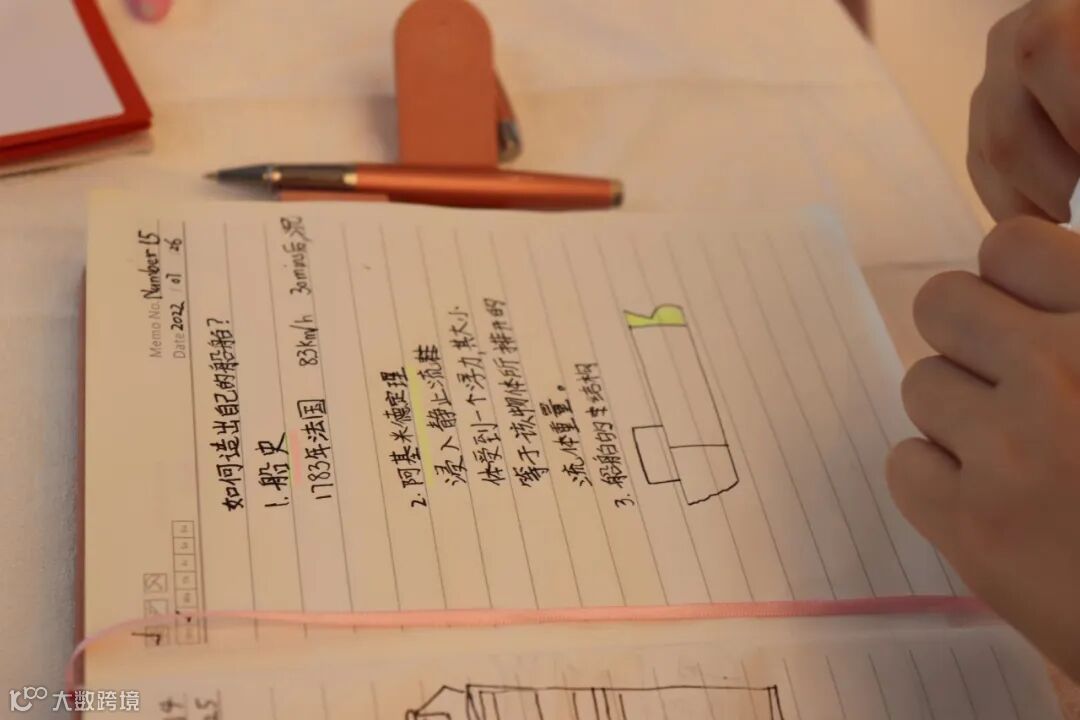 Memo No. Number 15
Date 2022 / 07 / 26
如何造出自己的船舶?
1. 船史
1783年法国 83km/h 30mins后,沉
2. 阿基米德定理
浸入静止流
体受到一个浮力,其大小
等于该物体所排开的
流体重量。
3. 船舶的主结构
大数跨境